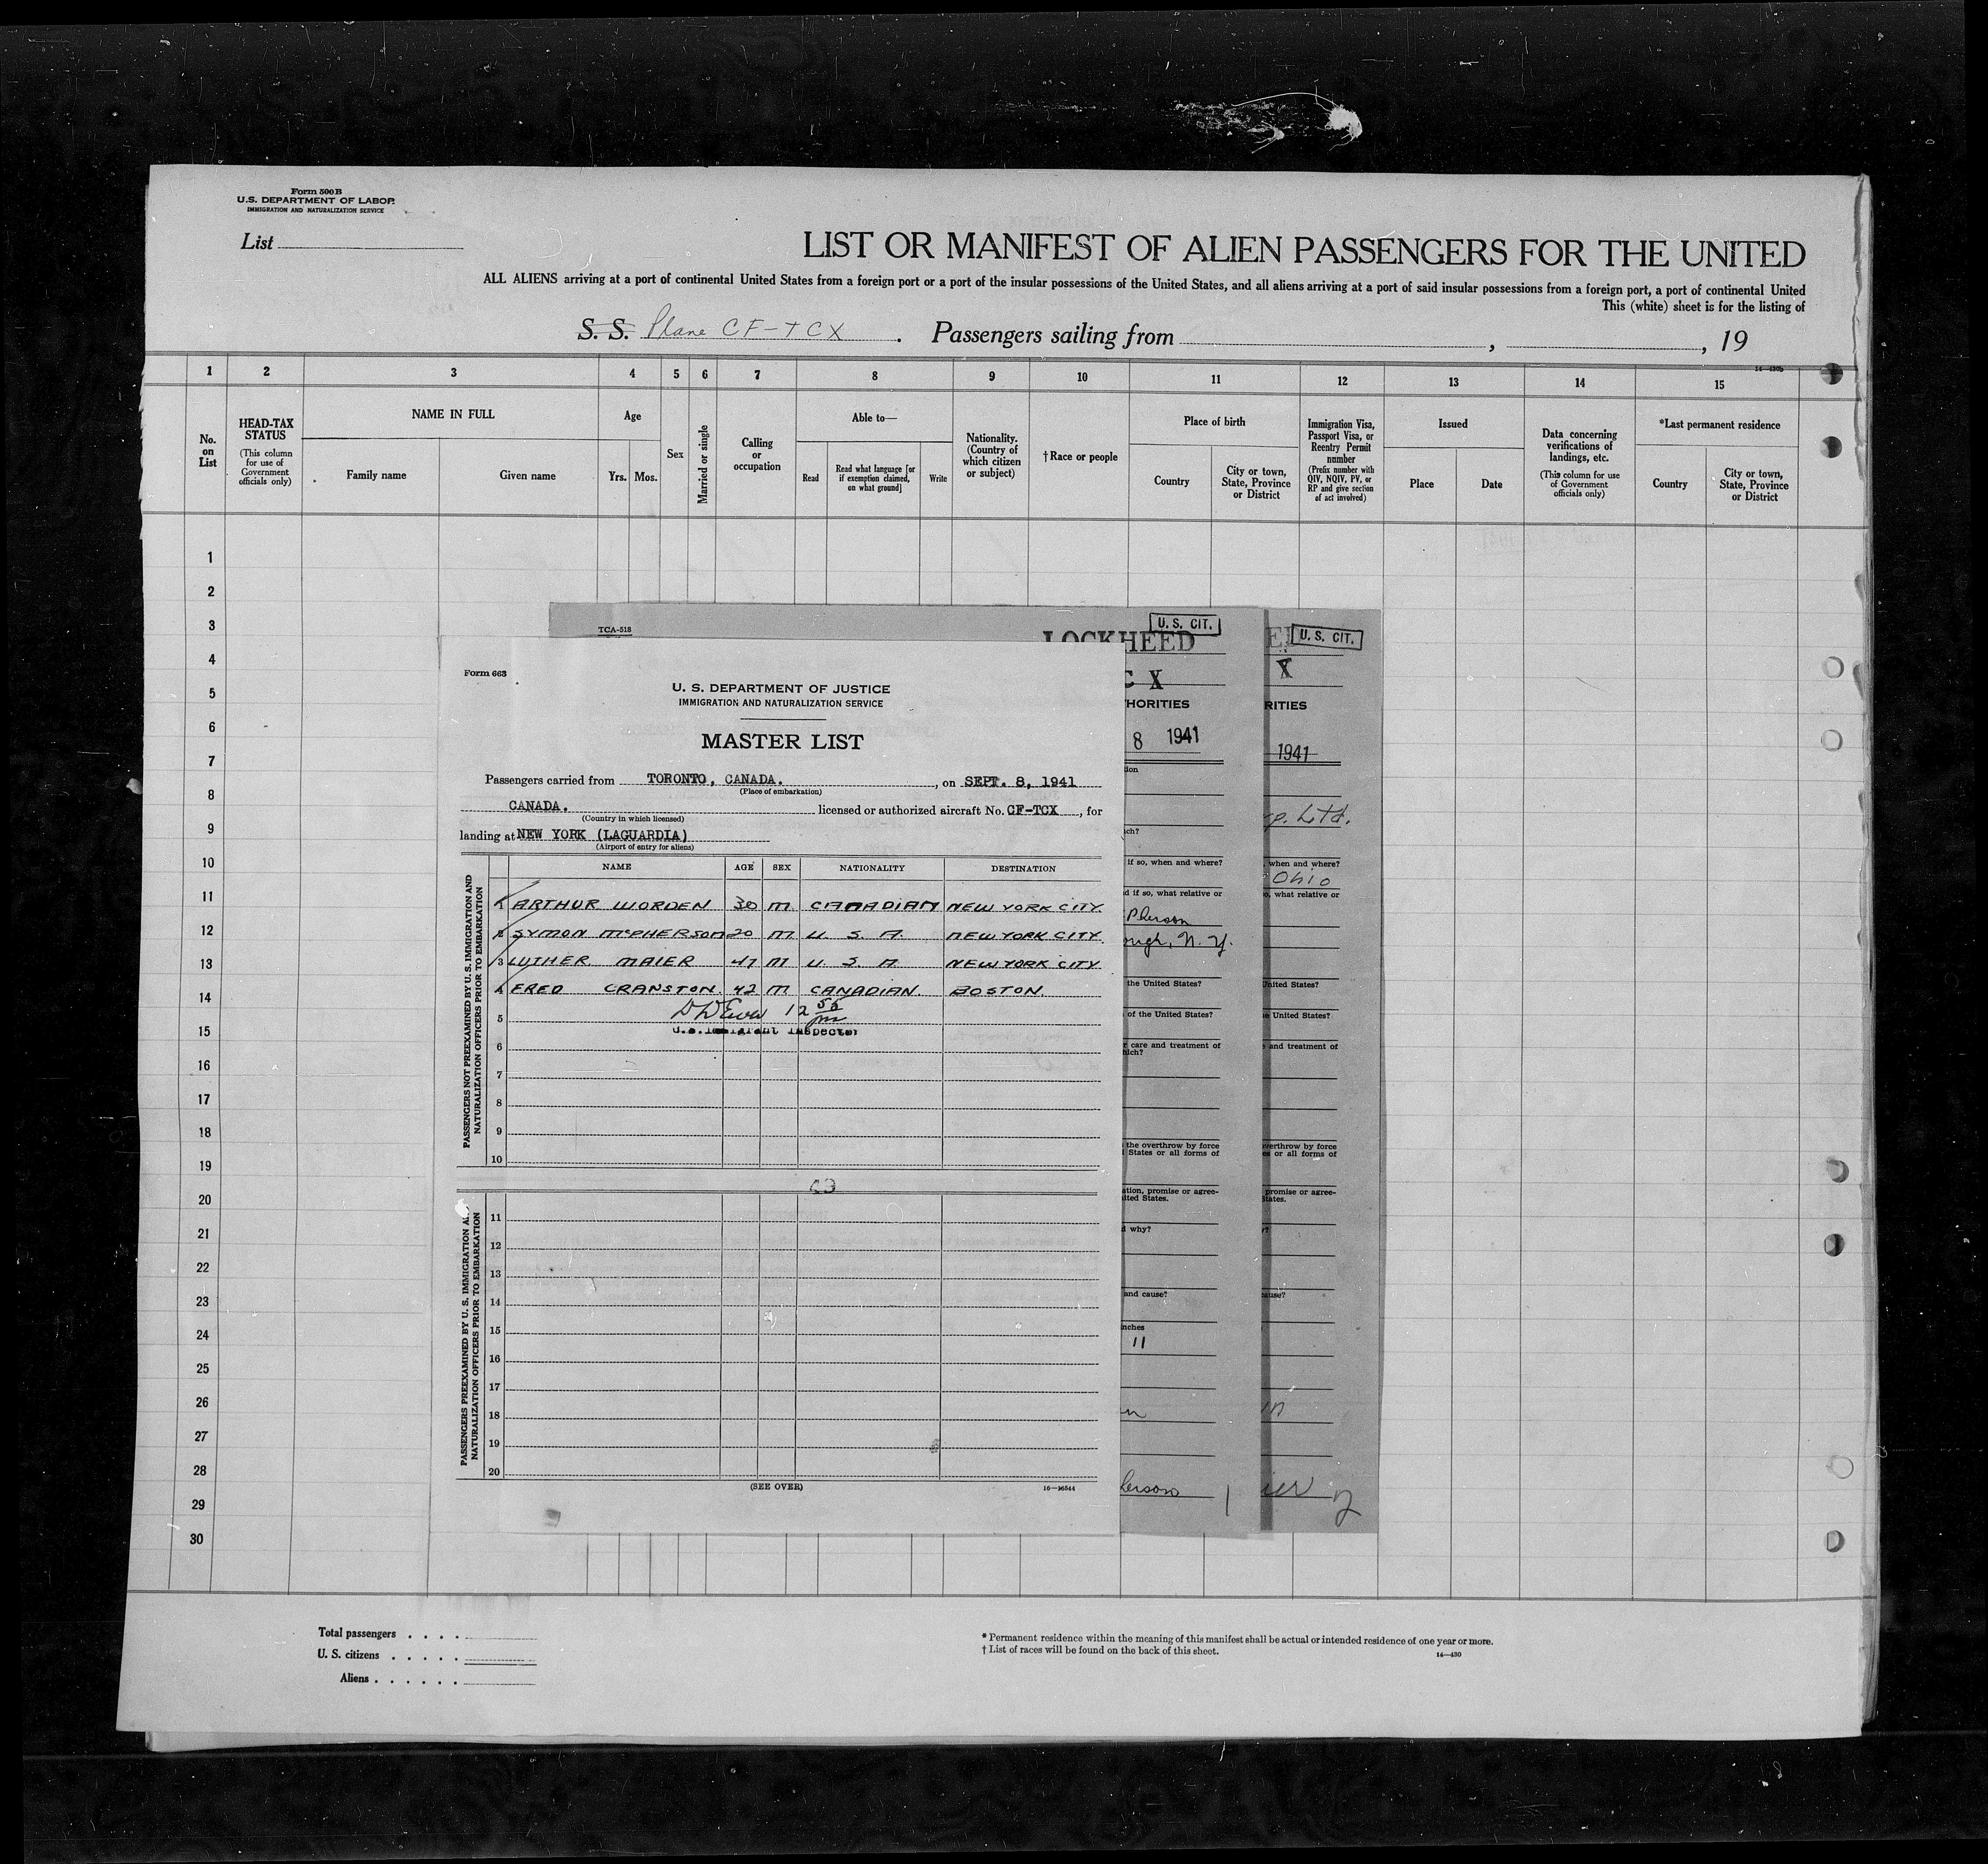 Form 500 B
U.S. DEPARTMENT OF LABOR
IMMIGRATION AND NATURALIZATION SERVICE
List
LIST OR MANIFEST OF ALIEN PASSENGERS FOR THE UNITED
ALL ALIENS arriving at a port of continental United States from a foreign port or a port of the insular possessions of the United States, and all aliens arriving at a port of said insular possessions from a foreign port, a port of continental United
This (white) sheet is for the listing of
S. S. Plane CF-TCX. Passengers sailing from , , 19
14—430b
1 2 3 4 5 6 7 8 9 10 11 12 13 14 15
No. on List
HEAD-TAX STATUS
(This column for use of Government officials only)
NAME IN FULL
Family name
Given name
Age
Yrs. Mos.
Sex
Married or single
Calling or occupation
Able to—
Read
Read what language [or if exemption claimed, on what ground]
Write
Nationality. (Country of which citizen or subject)
†Race or people
Place of birth
Country
City or town, State, Province or District
Immigration Visa, Passport Visa, or Reentry Permit number
(Prefix number with QIV, NQIV, PV, or RP and give section of act involved)
Issued
Place
Date
Data concerning verifications of landings, etc.
(This column for use of Government officials only)
*Last permanent residence
Country
City or town, State, Province or District
1
2
3
4
5
6
7
8
9
10
11
12
13
14
15
16
17
18
19
20
21
22
23
24
25
26
27
28
29
30
TCA-518
LOCKHEED
U. S. CIT.
Form 663
U. S. DEPARTMENT OF JUSTICE
IMMIGRATION AND NATURALIZATION SERVICE
MASTER LIST
Passengers carried from TORONTO, CANADA. , on SEPT. 8, 1941
(Place of embarkation)
CANADA. licensed or authorized aircraft No. CF-TCX , for
(Country in which licensed)
landing at NEW YORK (LAGUARDIA)
(Airport of entry for aliens)
NAME AGE SEX NATIONALITY DESTINATION
PASSENGERS NOT PREEXAMINED BY U. S. IMMIGRATION AND NATURALIZATION OFFICERS PRIOR TO EMBARKATION
1 ARTHUR WORDEN 30 M CANADIAN NEW YORK CITY.
2 SYMON McPHERSON 20 M U. S. A. NEW YORK CITY.
3 LUTHER MAIER 47 M U. S. A NEW YORK CITY
4 FRED CRANSTON. 42 M CANADIAN. BOSTON.
12 55 pm
5
U.S. Immigrant Inspector
6
7
8
9
10
PASSENGERS PREEXAMINED BY U. S. IMMIGRATION AND NATURALIZATION OFFICERS PRIOR TO EMBARKATION
11
12
13
14
15
16
17
18
19
20
(SEE OVER)
16—26544
C X
HORITIES
8 1941
ion
ch?
if so, when and where?
d if so, what relative or
Pherson
ough, N. Y.
the United States?
of the United States?
r care and treatment of
hich?
the overthrow by force
States or all forms of
ation, promise or agree-
ited States.
why?
and cause?
nches
11
herson
1
U. S. CIT.
X
RITIES
1941
p. Ltd.
when and where?
Ohio
o, what relative or
United States?
e United States?
and treatment of
verthrow by force
es or all forms of
promise or agree-
States.
?
cause?
in
ier
2
Total passengers . . . .
U. S. citizens . . . . .
Aliens . . . . . .
* Permanent residence within the meaning of this manifest shall be actual or intended residence of one year or more.
† List of races will be found on the back of this sheet.
14—430